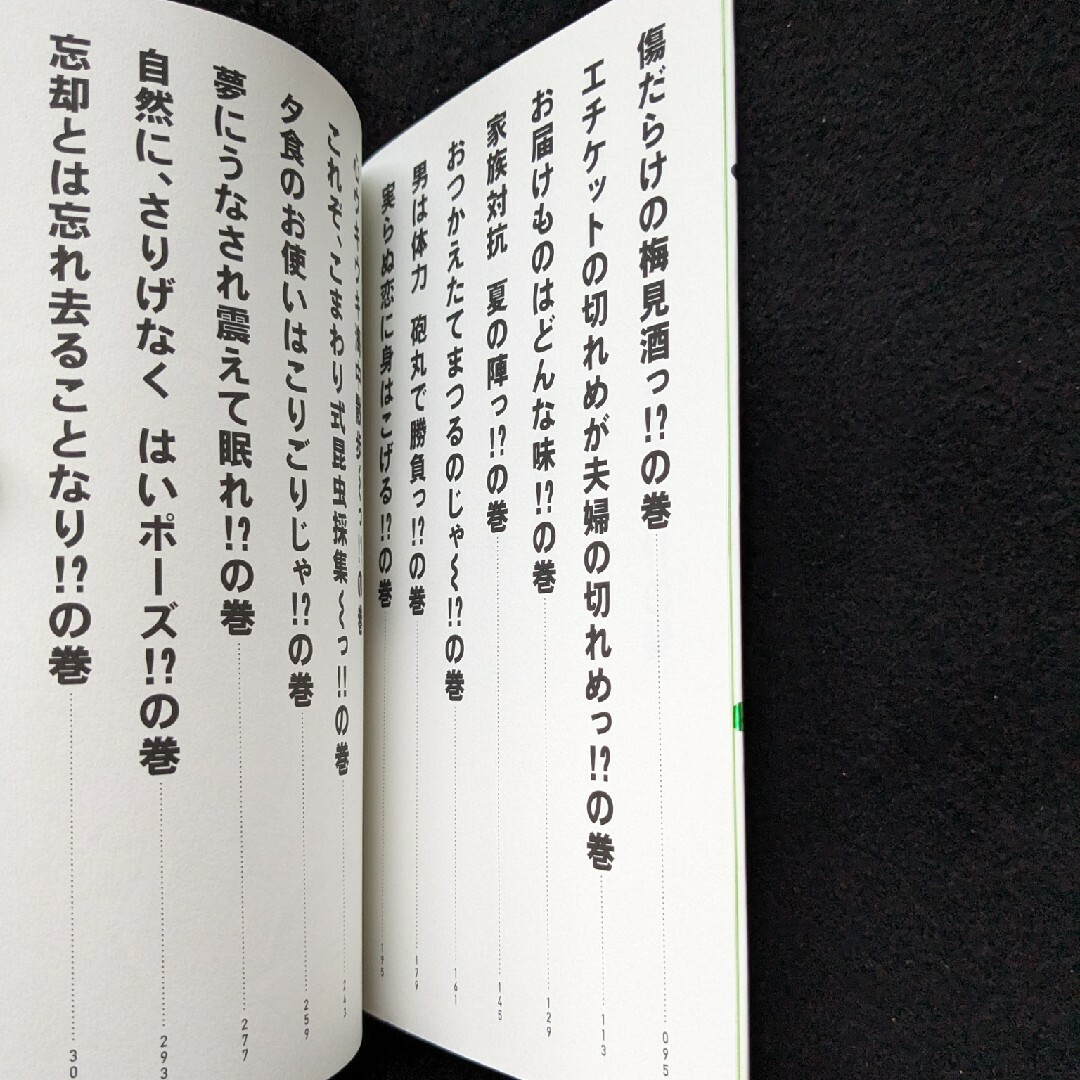 傷だらけの梅見酒っ!?の巻 095
エチケットの切れめが夫婦の切れめっ!?の巻 113
お届けものはどんな味!?の巻 129
家族対抗 夏の陣っ!?の巻 145
おつかえたてまつるのじゃ〜!?の巻 161
男は体力 砲丸で勝負っ!?の巻 179
実らぬ恋に身はこげる!?の巻 195
これぞ、こまわり式昆虫採集〜っ!!の巻 243
夕食のお使いはこりごりじゃ!?の巻 259
夢にうなされ震えて眠れ!?の巻 277
自然に、さりげなく はいポーズ!?の巻 293
忘却とは忘れ去ることなり!?の巻 30